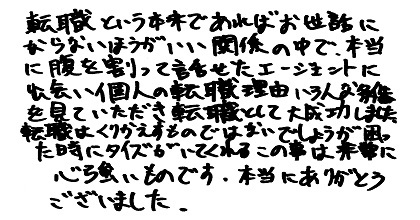 転職という本来であればお世話に
ならないほうがいい関係の中で、本当
に腹を割って話せたエージェントに
出会い個人の転職理由いろんな条件
を見ていただき転職として大成功しました
転職はくりかえすものではないでしょうが困っ
た時にタイズがいてくれるこの事は非常に
心強いものです。本当にありがとう
ございました。